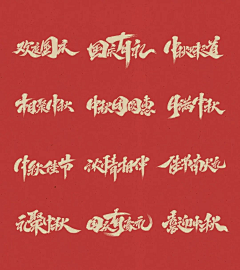 欢度国庆 国庆有礼 中秋味道
相聚中秋 中秋团圆惠 月满中秋
中秋佳节 浓情相伴 佳节有礼
礼聚中秋 国庆有豪礼 喜迎中秋